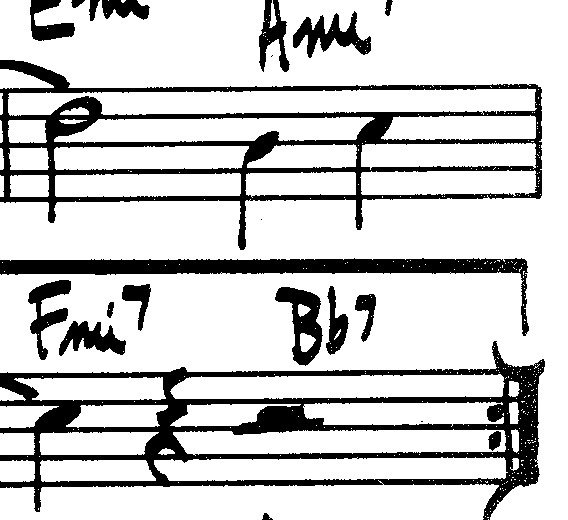 Emi Ami7
Fmi7 Bb7